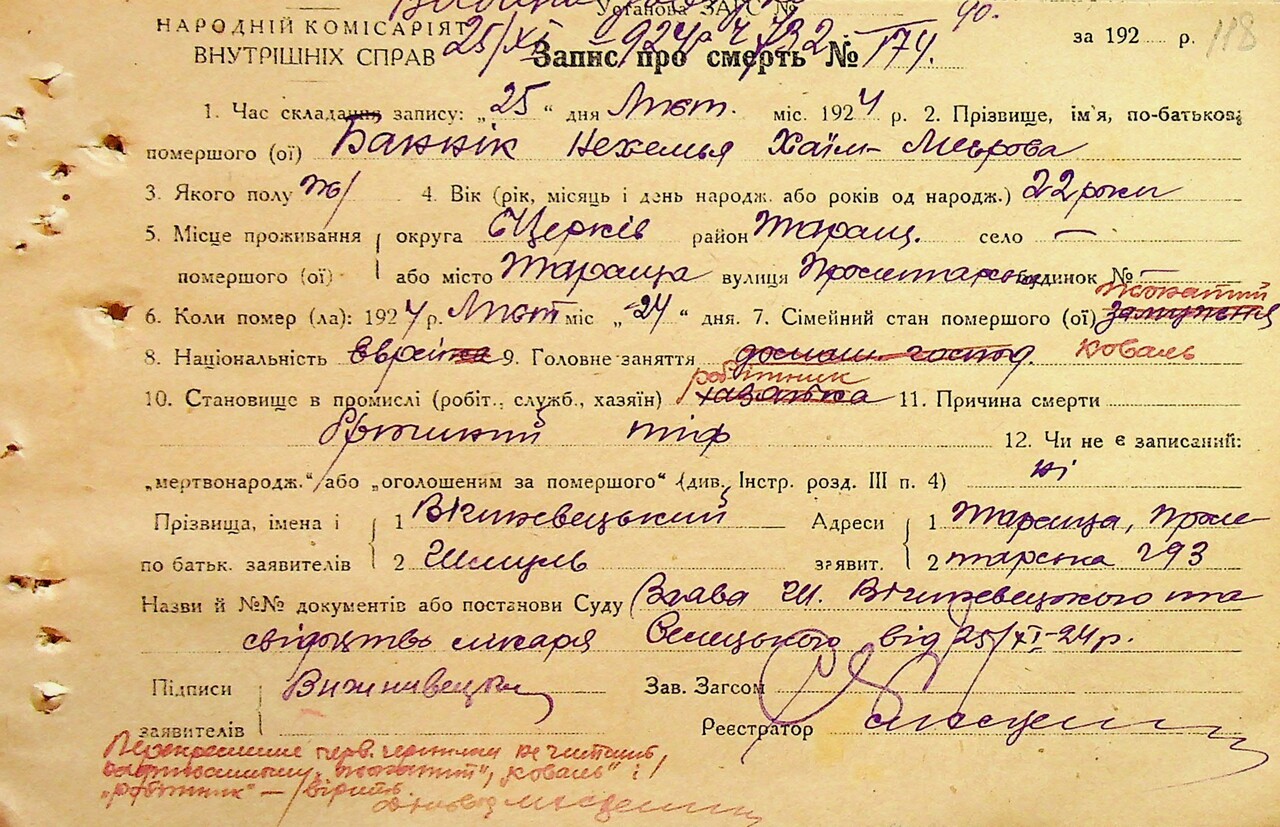 Установа ЗАГС №
НАРОДНІЙ КОМІСАРІЯТ
ВНУТРІШНІХ СПРАВ 25/XI 924 р Ч 732
Запис про смерть № 174. за 192 р. 118
1. Час складання запису: „25“ дня Лист. міс. 1924 р. 2. Прізвище, ім'я, по-батькові
помершого (ої) Баннік Нехемья Хаїм-Меєрова
3. Якого полу ж/ 4. Вік (рік, місяць і день народж. або років од народж.) 22 роки
5. Місце проживання округа БЦерків район Таращ. село —
помершого (ої) або місто Тараща вулиця Пролетарська будинок № —
жонатий
6. Коли помер (ла): 1924 р. Лист міс „24“ дня. 7. Сімейний стан помершого (ої) замужня
8. Національність Єврейка 9. Головне заняття домаш. господ. коваль
робітник
10. Становище в промислі (робіт., служб., хазяїн) хазяйка 11. Причина смерти
тиф 12. Чи не є записаний:
„мертвонародж.“ або „оголошеним за помершого“ (див. Інстр. розд. III п. 4) ні
Прізвища, імена і 1 Вішневецький Адреси 1 Тараща, Проле-
по батьк. заявителів 2 Шмуль заявит. 2 тарська 293
Назви й №№ документів або постанови Суду Заява Ш. Вішневецького та
свідоцтво лікаря від 25/XI-24 р.
Підписи Вишнивецки Зав. Загсом
заявителів Реєстратор
Перекреслине черв. чернилом не читать,
надписаному „жонатий“, „коваль“ і
„робітник“ — вірить